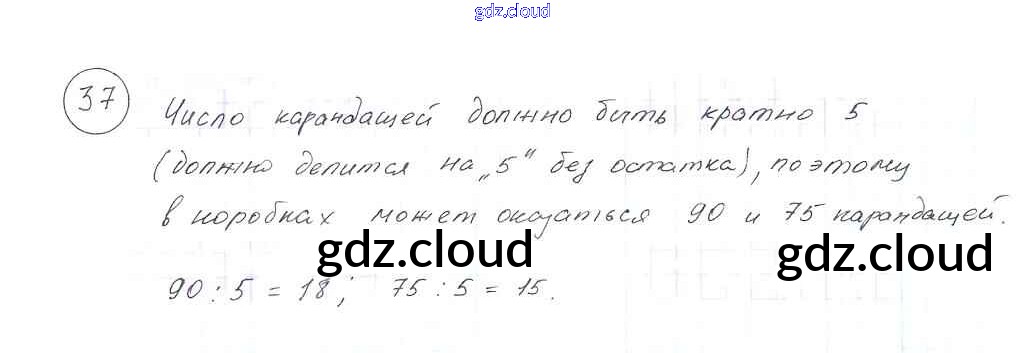 gdz.cloud
37
Число карандашей должно быть кратно 5
(должно делится на „5“ без остатка), поэтому
в коробках может оказаться 90 и 75 карандашей.
gdz.cloud
gdz.cloud
90 : 5 = 18; 75 : 5 = 15.